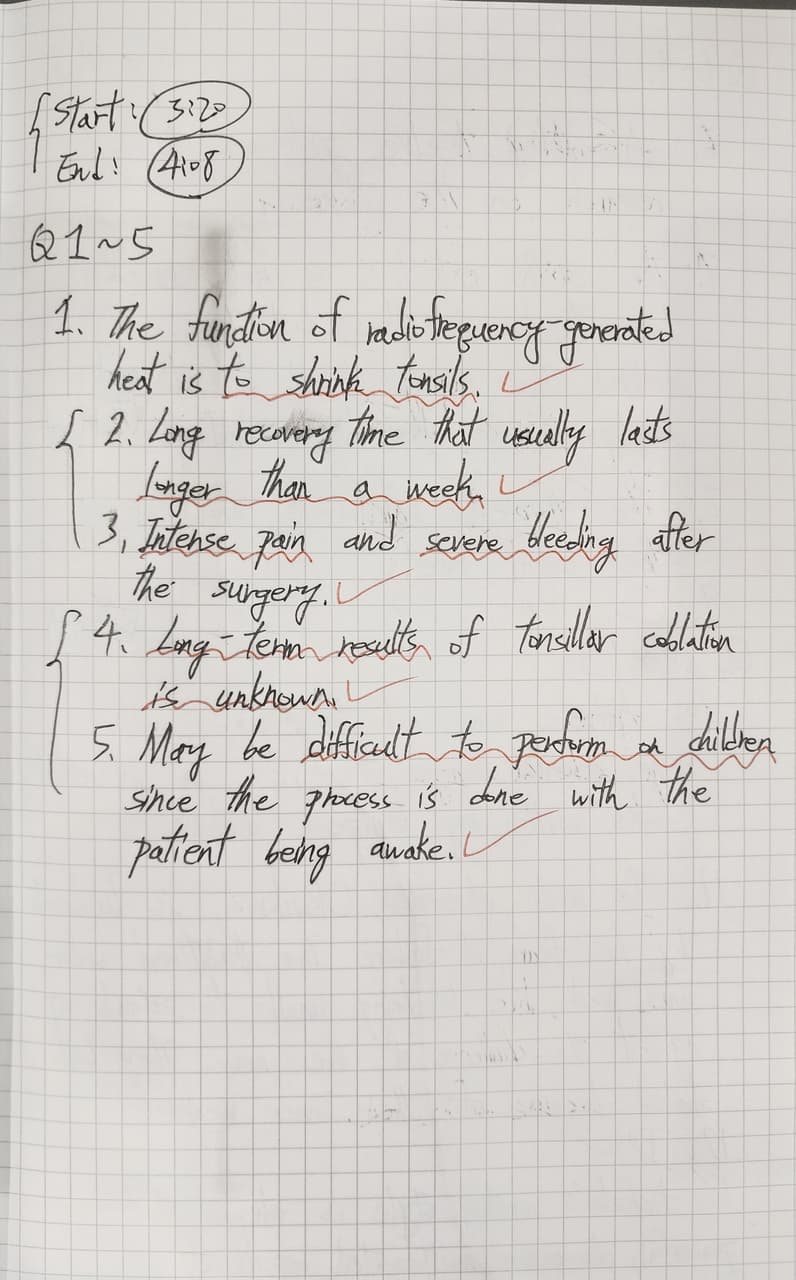 Start: 3:20
End: 4:08
Q1~5
1. The function of radiofrequency-generated
heat is to shrink tonsils.
2. Long recovery time that usually lasts
longer than a week.
3, Intense pain and severe bleeding after
the surgery.
4. Long-term results of tonsillar coblation
is unknown.
5. May be difficult to perform on children
since the process is done with the
patient being awake.